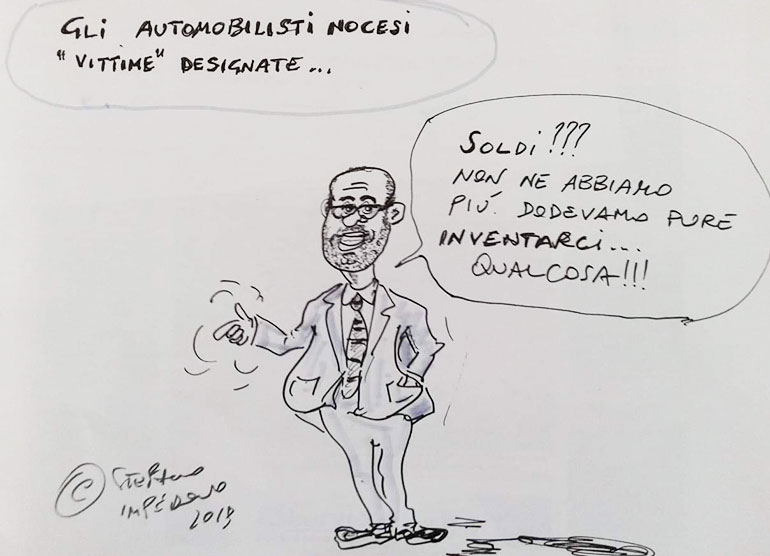 GLI AUTOMOBILISTI NOCESI
"VITTIME" DESIGNATE...
SOLDI???
NON NE ABBIAMO
PIÚ. DODEVAMO PURE
INVENTARCI...
QUALCOSA!!!
©
IMPÉDOVO
2019